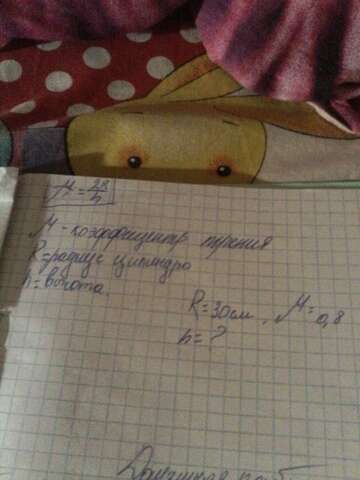 μ = 2R/h
μ - коэффициент трения
R = радиус цилиндра
h = высота
R = 30 см, μ = 0,8
h = ?
Домашняя раб